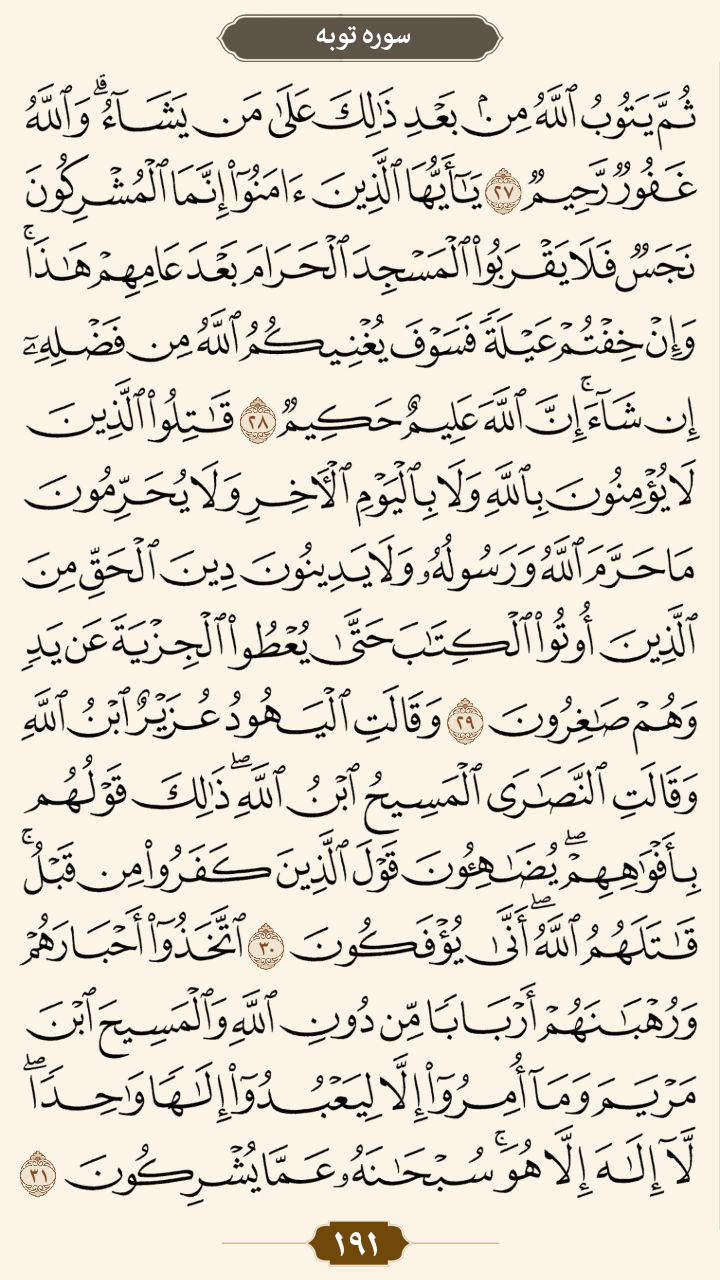 سوره توبه
ثُمَّ يَتُوبُ ٱللَّهُ مِنۢ بَعْدِ ذَٰلِكَ عَلَىٰ مَن يَشَآءُۗ وَٱللَّهُ
غَفُورٌ رَّحِيمٌ ٢٧ يَـٰٓأَيُّهَا ٱلَّذِينَ ءَامَنُوٓا۟ إِنَّمَا ٱلْمُشْرِكُونَ
نَجَسٌ فَلَا يَقْرَبُوا۟ ٱلْمَسْجِدَ ٱلْحَرَامَ بَعْدَ عَامِهِمْ هَـٰذَاۚ
وَإِنْ خِفْتُمْ عَيْلَةً فَسَوْفَ يُغْنِيكُمُ ٱللَّهُ مِن فَضْلِهِۦٓ
إِن شَآءَۚ إِنَّ ٱللَّهَ عَلِيمٌ حَكِيمٌ ٢٨ قَـٰتِلُوا۟ ٱلَّذِينَ
لَا يُؤْمِنُونَ بِٱللَّهِ وَلَا بِٱلْيَوْمِ ٱلْـَٔاخِرِ وَلَا يُحَرِّمُونَ
مَا حَرَّمَ ٱللَّهُ وَرَسُولُهُۥ وَلَا يَدِينُونَ دِينَ ٱلْحَقِّ مِنَ
ٱلَّذِينَ أُوتُوا۟ ٱلْكِتَـٰبَ حَتَّىٰ يُعْطُوا۟ ٱلْجِزْيَةَ عَن يَدٍ
وَهُمْ صَـٰغِرُونَ ٢٩ وَقَالَتِ ٱلْيَهُودُ عُزَيْرٌ ٱبْنُ ٱللَّهِ
وَقَالَتِ ٱلنَّصَـٰرَى ٱلْمَسِيحُ ٱبْنُ ٱللَّهِۖ ذَٰلِكَ قَوْلُهُم
بِأَفْوَٰهِهِمْۖ يُضَـٰهِـُٔونَ قَوْلَ ٱلَّذِينَ كَفَرُوا۟ مِن قَبْلُۚ
قَـٰتَلَهُمُ ٱللَّهُۖ أَنَّىٰ يُؤْفَكُونَ ٣٠ ٱتَّخَذُوٓا۟ أَحْبَارَهُمْ
وَرُهْبَـٰنَهُمْ أَرْبَابًا مِّن دُونِ ٱللَّهِ وَٱلْمَسِيحَ ٱبْنَ
مَرْيَمَ وَمَآ أُمِرُوٓا۟ إِلَّا لِيَعْبُدُوٓا۟ إِلَـٰهًا وَٰحِدًاۖ
لَّآ إِلَـٰهَ إِلَّا هُوَۚ سُبْحَـٰنَهُۥ عَمَّا يُشْرِكُونَ ٣١
١٩١